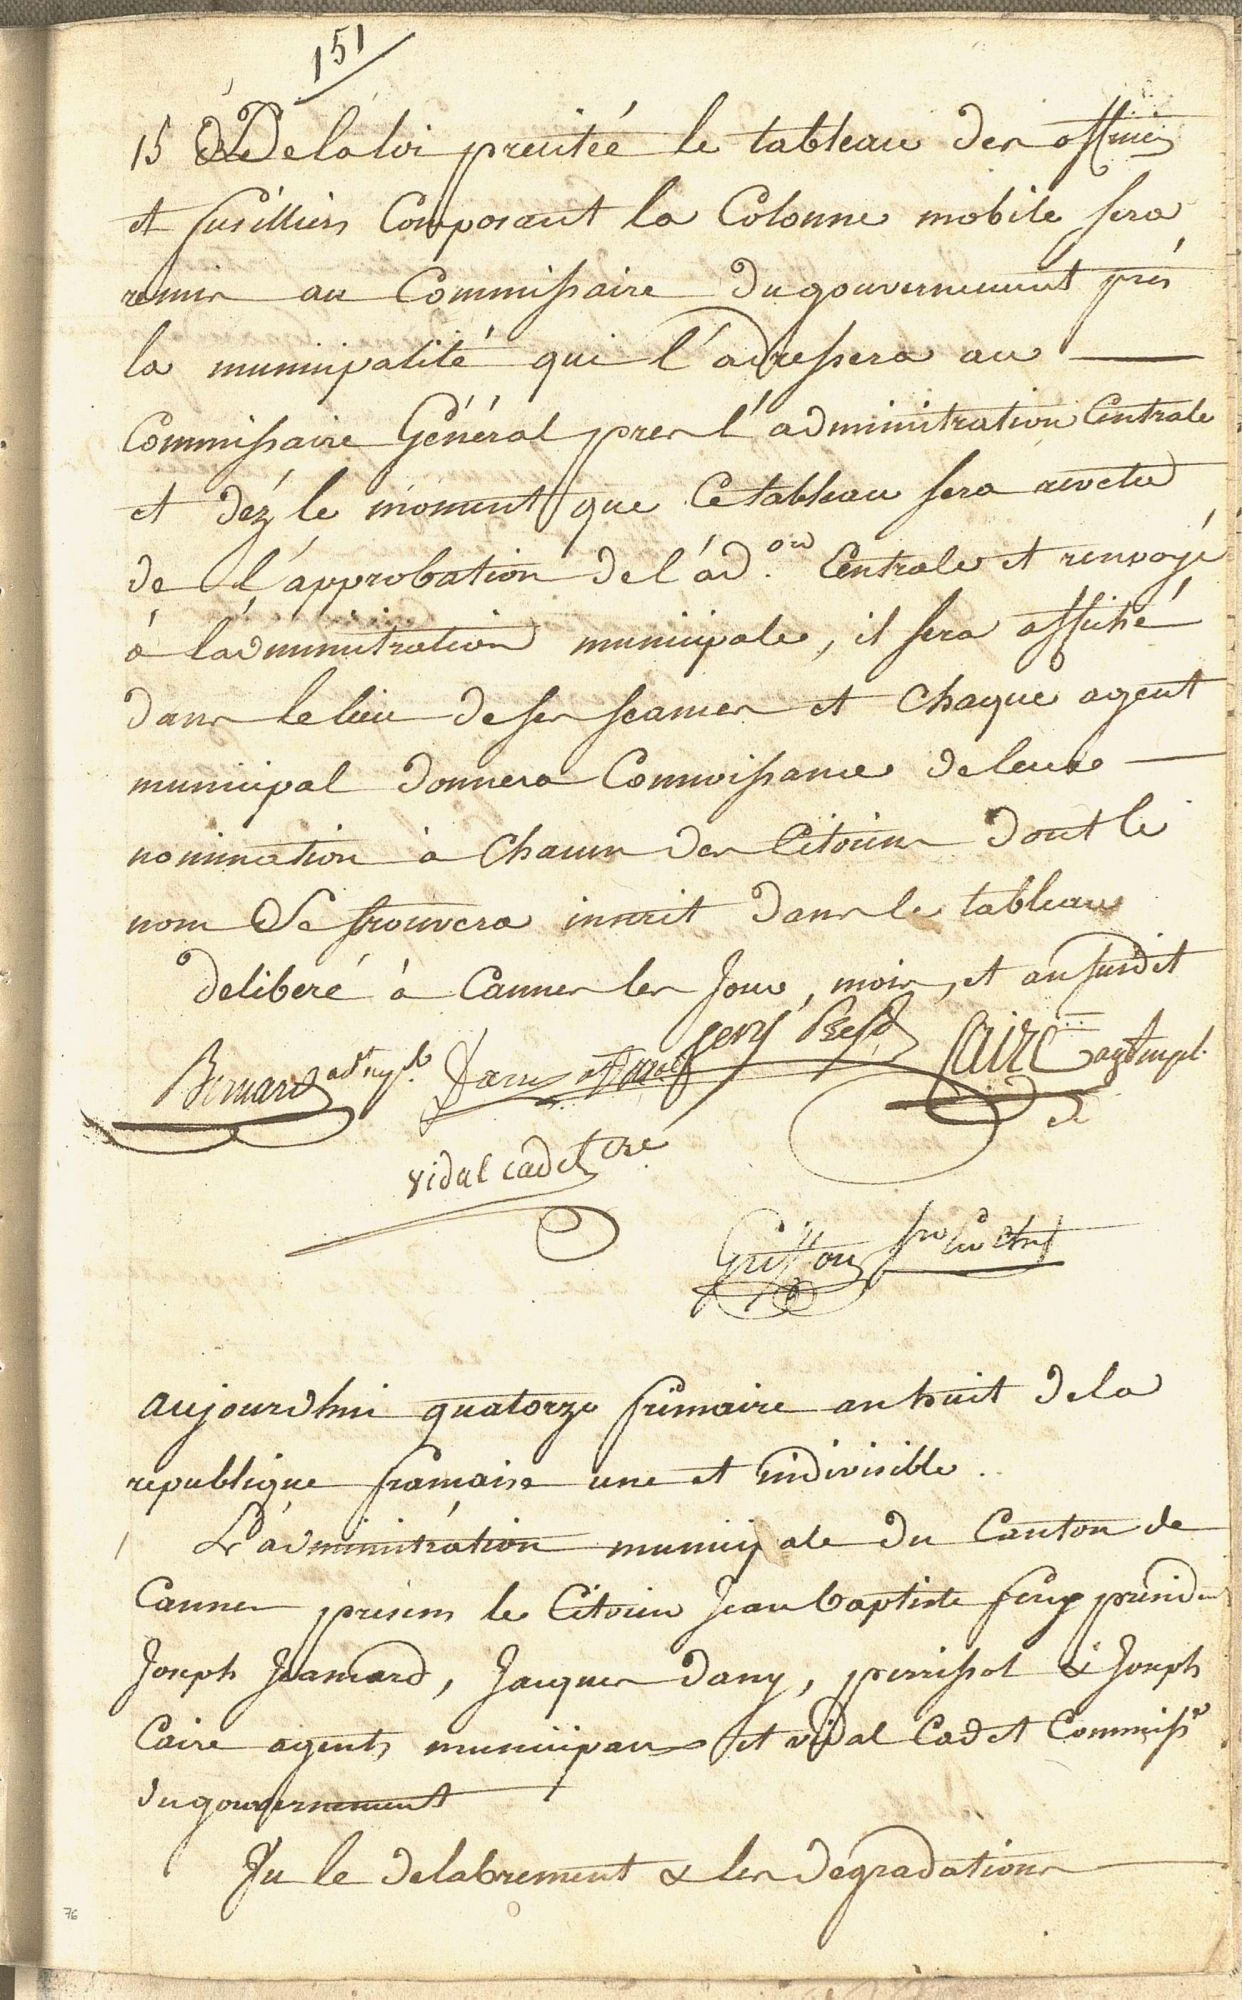 151
15 De la loi precitée le tableau des officiers
et fusilliers Composant la Colonne mobile sera
remis au Commissaire du gouvernement près
la municipalité qui l'adressera au
Commissaire Général pres l'administration Centrale
et déz le moment que Ce tableau sera revetu
de l'approbation de l'ad.on Centrale et renvoyé
à l'administration municipale, il sera affiché
dans le lieu de ses seances et Chaque agent
municipal donnera Connoissance de leur
nomination à Chacun des Citoiens dont le
nom Se trouvera inscrit dans le tableau
deliberé à Cannes les Jour, mois, et an susdit
Bernard adt mpl. Dany Seny Presdt Caire agt mpl.
vidal cadet cre
Griffon secretre
aujourdhui quatorze frimaire an huit de la
republique francaise une et indivisible.
L'administration municipale du Canton de
Cannes présens le Citoien Jean baptiste Seny présidt
Joseph Jeancard, Jacques dany, perrissol & Joseph
Caire agents municipaux et vidal Cadet Commissre
du gouvernement
Vu le delabrement & les degradations
76